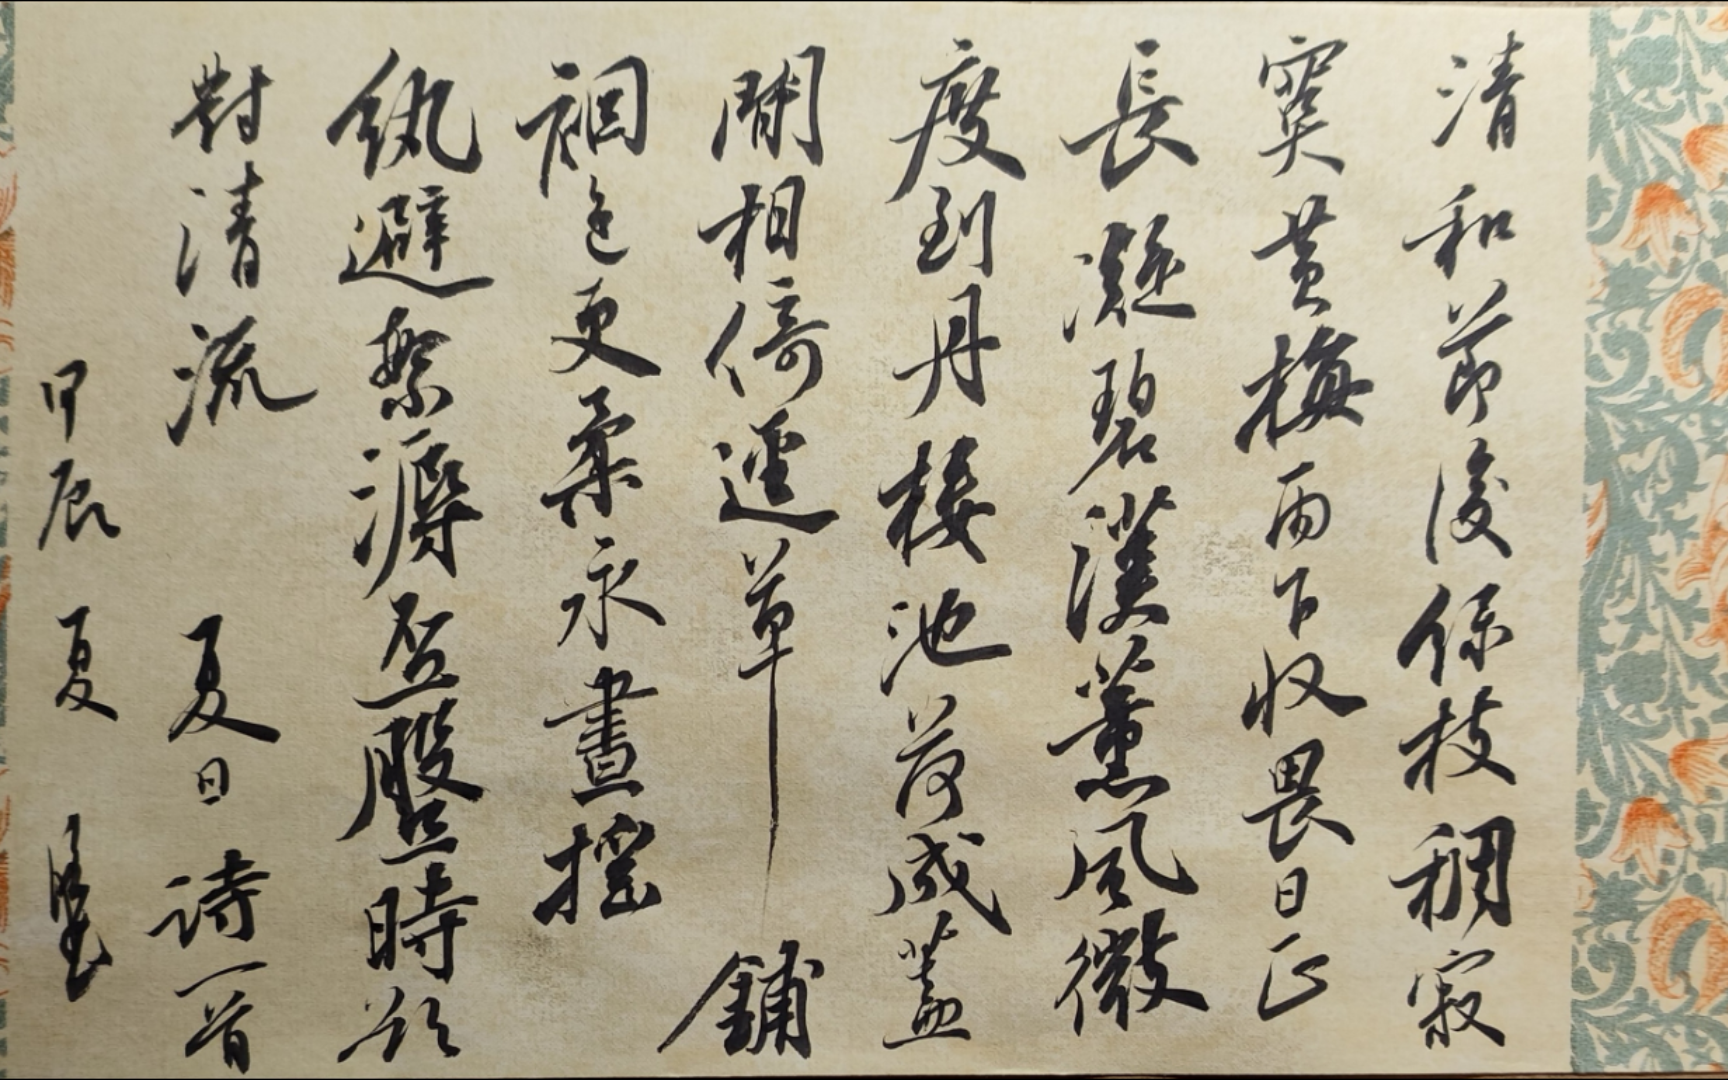 清和節後綠枝稠寂
寞黃梅雨乍收畏日正
長凝碧漢薰風微
度到丹樓池荷成蓋
閒相倚逕草鋪
裀色更柔永晝搖
紈避繁溽盃盤時欲
對清流 夏日詩一首
甲辰 夏